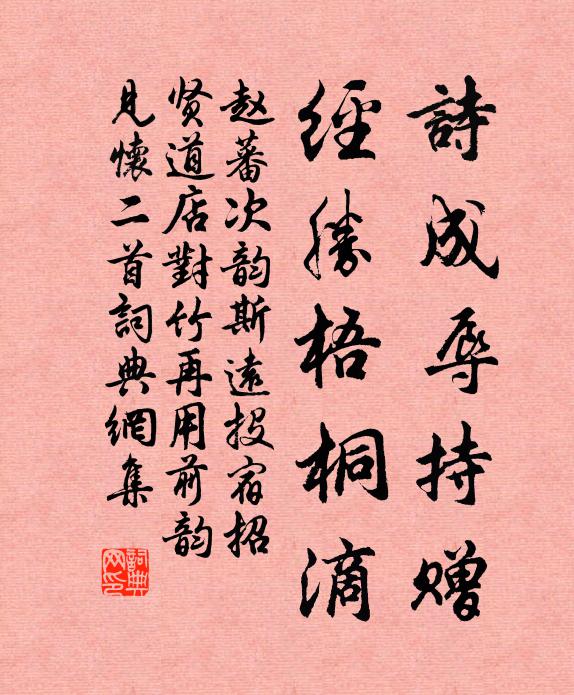 詩成辱持贈
經勝梧桐滴
赵蕃次韵斯遠投宿招
贤道店對竹再用前韵
見懷二首詞典網集
詞典網印